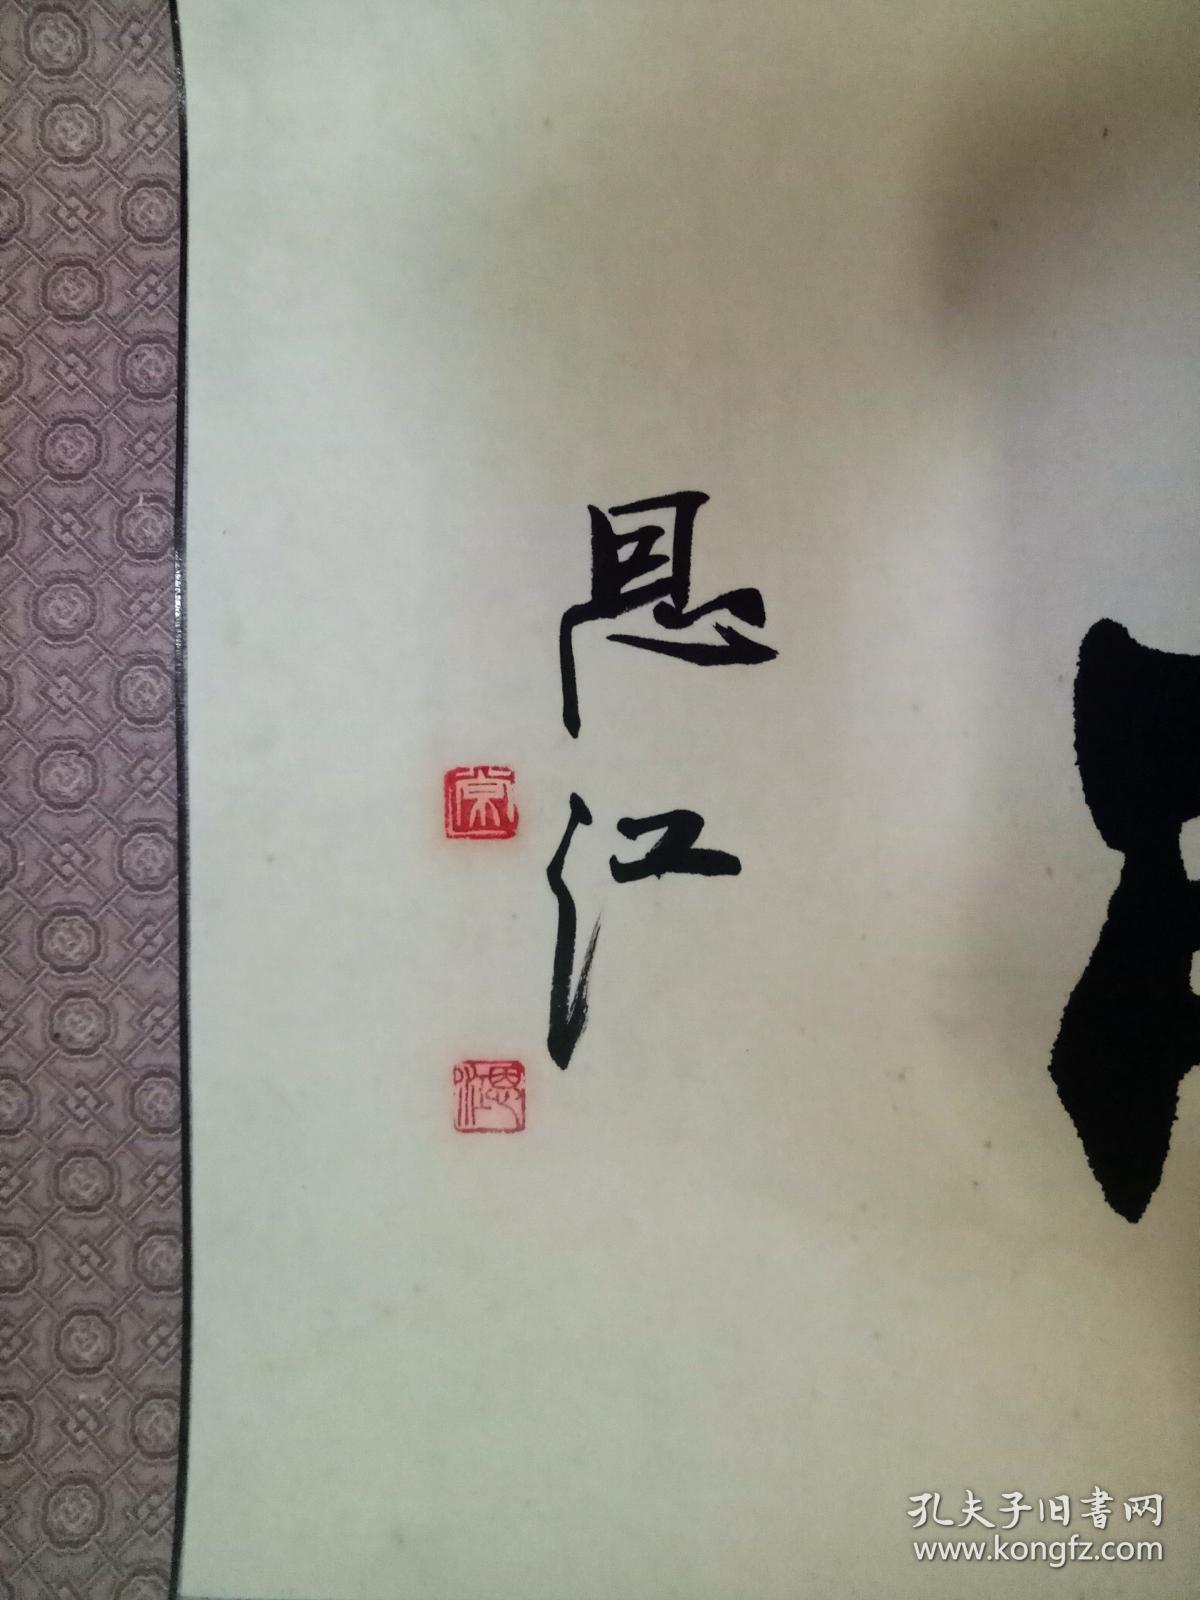 恩江
孔夫子旧書网
www.kongfz.com